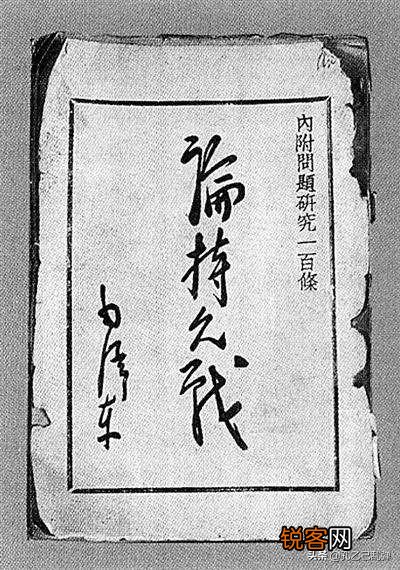 內附問題研究一百條
論持久战
毛澤东
锐客网